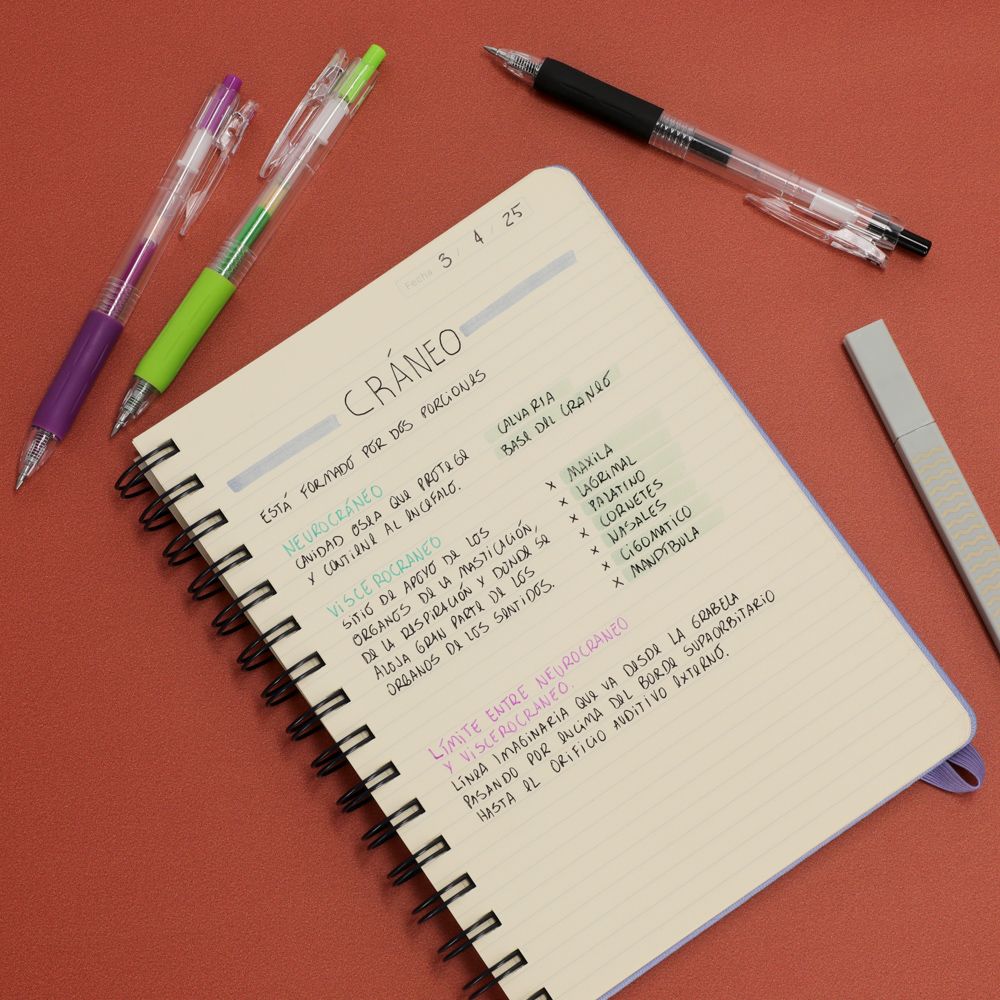 Fecha 3 / 4 / 25
CRÁNEO
ESTÁ FORMADO POR DOS PORCIONES
NEUROCRÁNEO
CAVIDAD OSEA QUE PROTEGE
Y CONTIENE AL ENCEFALO.
CALVARIA
BASE DEL CRANEO
VISCEROCRANEO
SITIO DE APOYO DE LOS
ORGANOS DE LA MASTICACIÓN,
DE LA RESPIRACIÓN Y DONDE SE
ALOJA GRAN PARTE DE LOS
ORGANOS DE LOS SENTIDOS.
x MAXILA
x LAGRIMAL
x PALATINO
x CORNETES
x NASALES
x CIGOMATICO
x MANDIBULA
LÍMITE ENTRE NEUROCRANEO
Y VISCEROCRANEO.
LÍNEA IMAGINARIA QUE VA DESDE LA GRABELA
PASANDO POR ENCIMA DEL BORDE SUPAORBITARIO
HASTA EL ORIFICIO AUDITIVO EXTERNO.